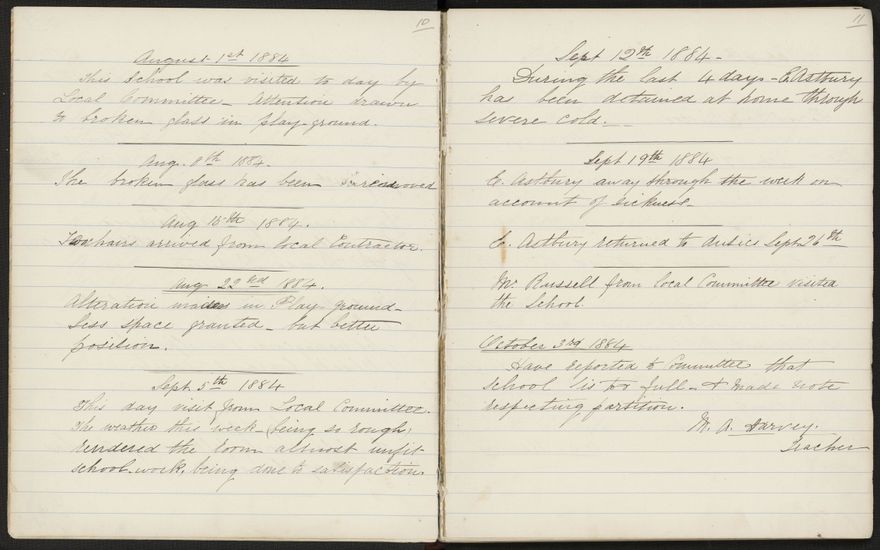 10
August 1st 1884
This School was visited to day by
Local Committee - Attention drawn
to broken glass in play-ground.
Aug. 8th 1884.
The broken glass has been removed
Aug 15th 1884.
Two chairs arrived from Local Contractor.
Aug 22nd 1884.
Alteration made in Play-ground -
Less space granted - but better
position.
Sept. 5th 1884
This day visit from Local Committee.
The weather this week - being so rough,
rendered the room almost unfit
school work, being done to satisfaction
11
Sept 12th 1884 -
During the last 4 days - E. Astbury
has been detained at home through
severe cold.
Sept 19th 1884
E. Astbury away through the week on
account of sickness -
E. Astbury returned to duties Sept 26th
Mr. Russell from Local Committee visited
the School.
October 3rd 1884
Have reported to Committee that
school is too full - & made note
respecting partition.
M. A. Harvey.
Teacher